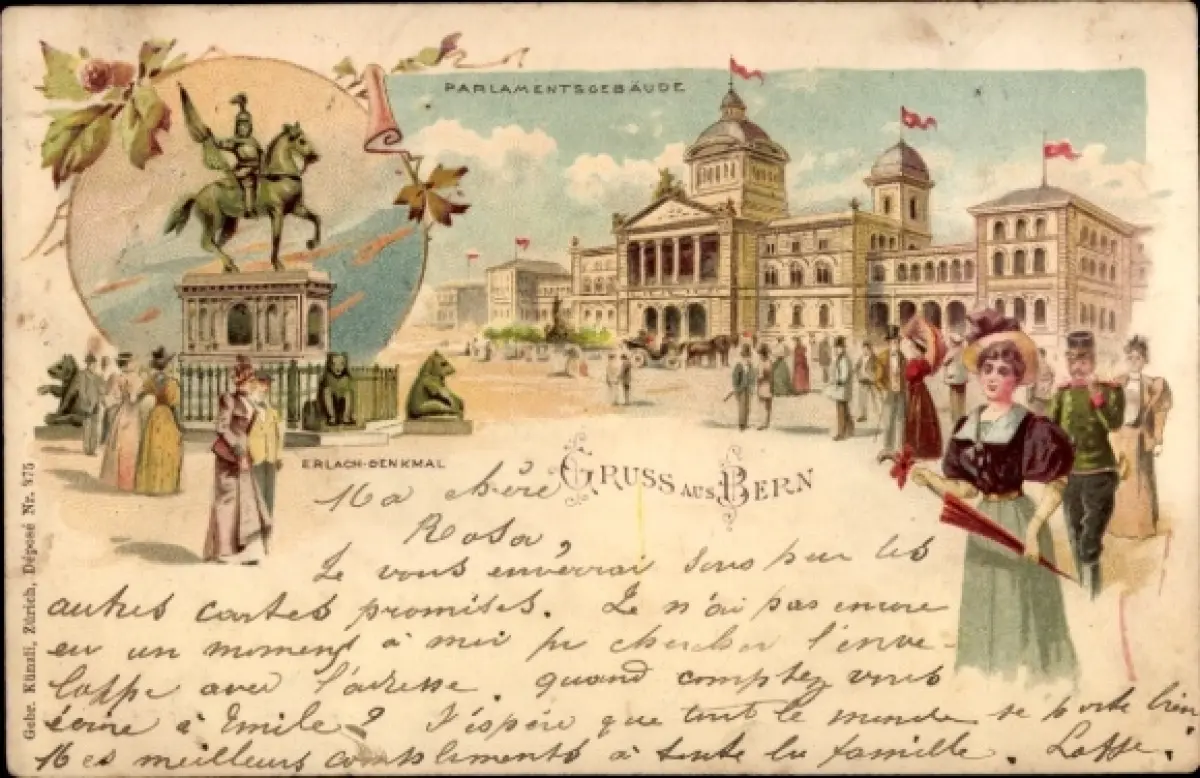 PARLAMENTSGEBÄUDE
ERLACH-DENKMAL
GRUSS AUS BERN
Gebr. Künzli, Zürich, Déposé Nr. 875
Ma chère
Rosa,
Je vous enverrai sous peu les
autres cartes promises. Je n'ai pas encore
eu un moment à moi pr chercher l'enve-
loppe avec l'adresse. quand comptez vous
écrire à Emile? J'éspére que tout le monde se porte bien
Mes meilleurs compliments à toute la famille.